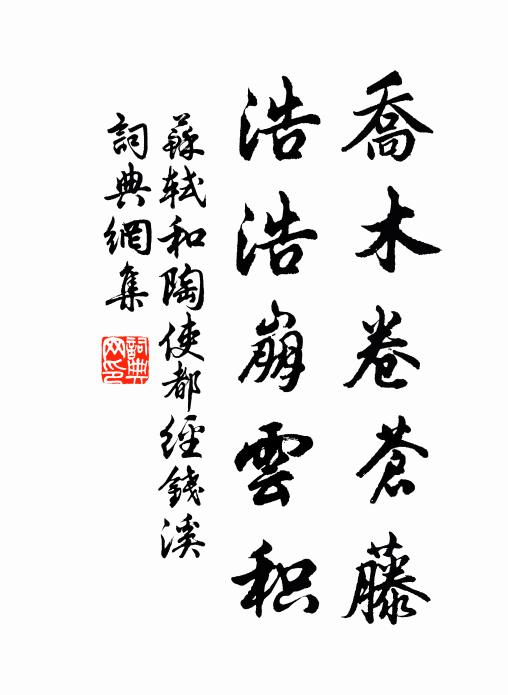 喬木卷蒼藤
浩浩崩雲积
蘇軾和陶使都經錢溪
詞典網集
詞典網印